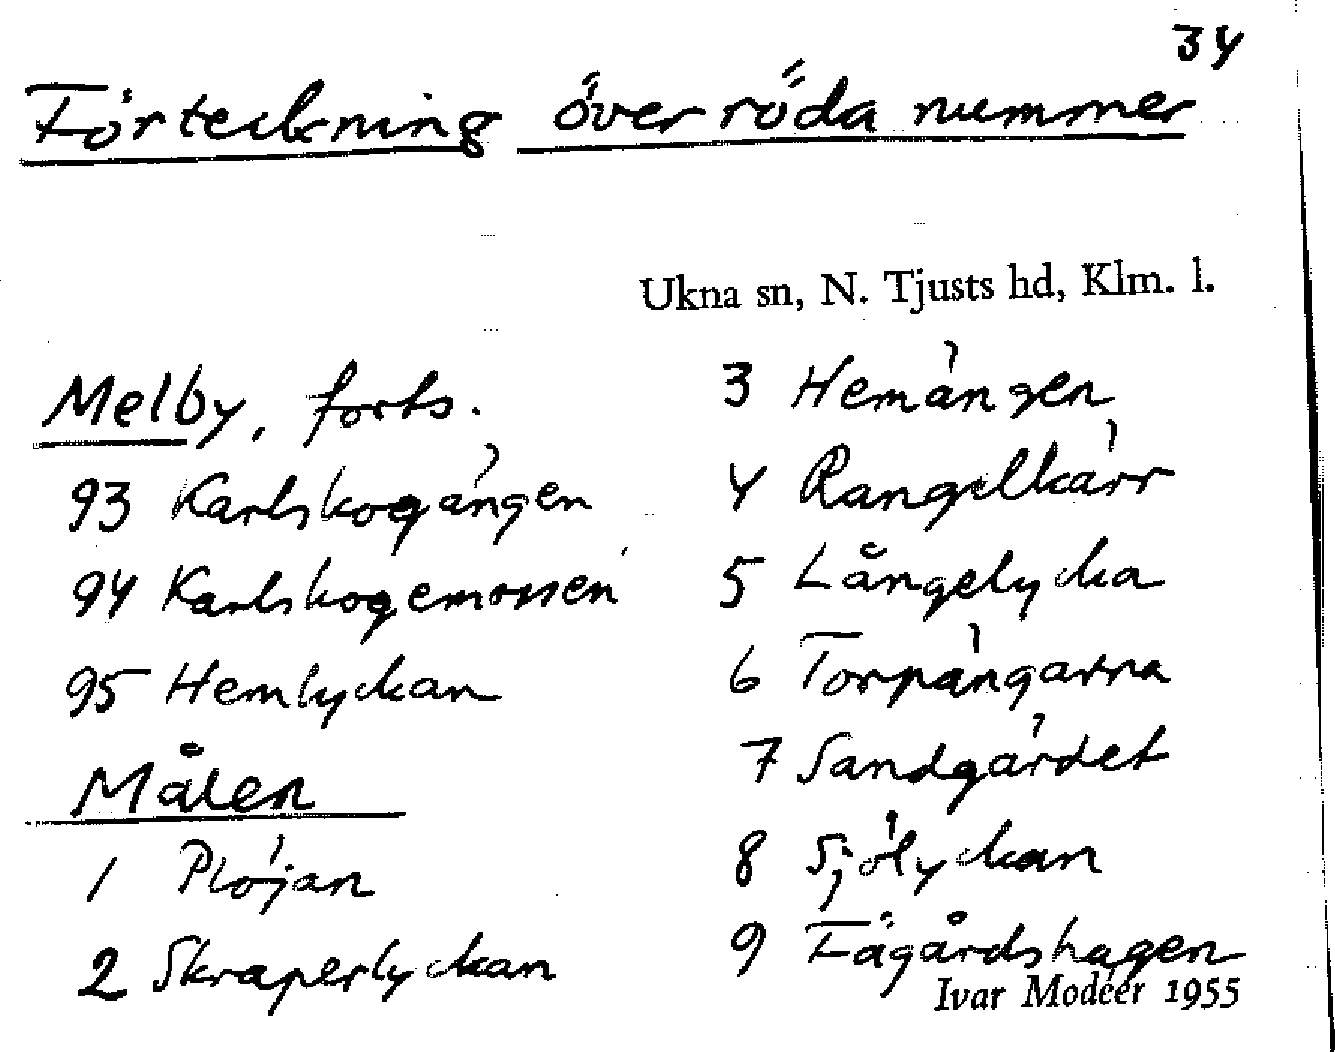 34
Förteckning över röda nummer
Ukna sn, N. Tjusts hd, Klm. l.
Melby, forts.
93 Karlskogängen
94 Karlskogemossen
95 Hemlyckan
Målen
1 Plöjan
2 Skraperlyckan
3 Hemängen
4 Rangelkärr
5 Långelycka
6 Torpängarna
7 Sandgärdet
8 Sjölyckan
9 Fägårdshagen
Ivar Modéer 1955